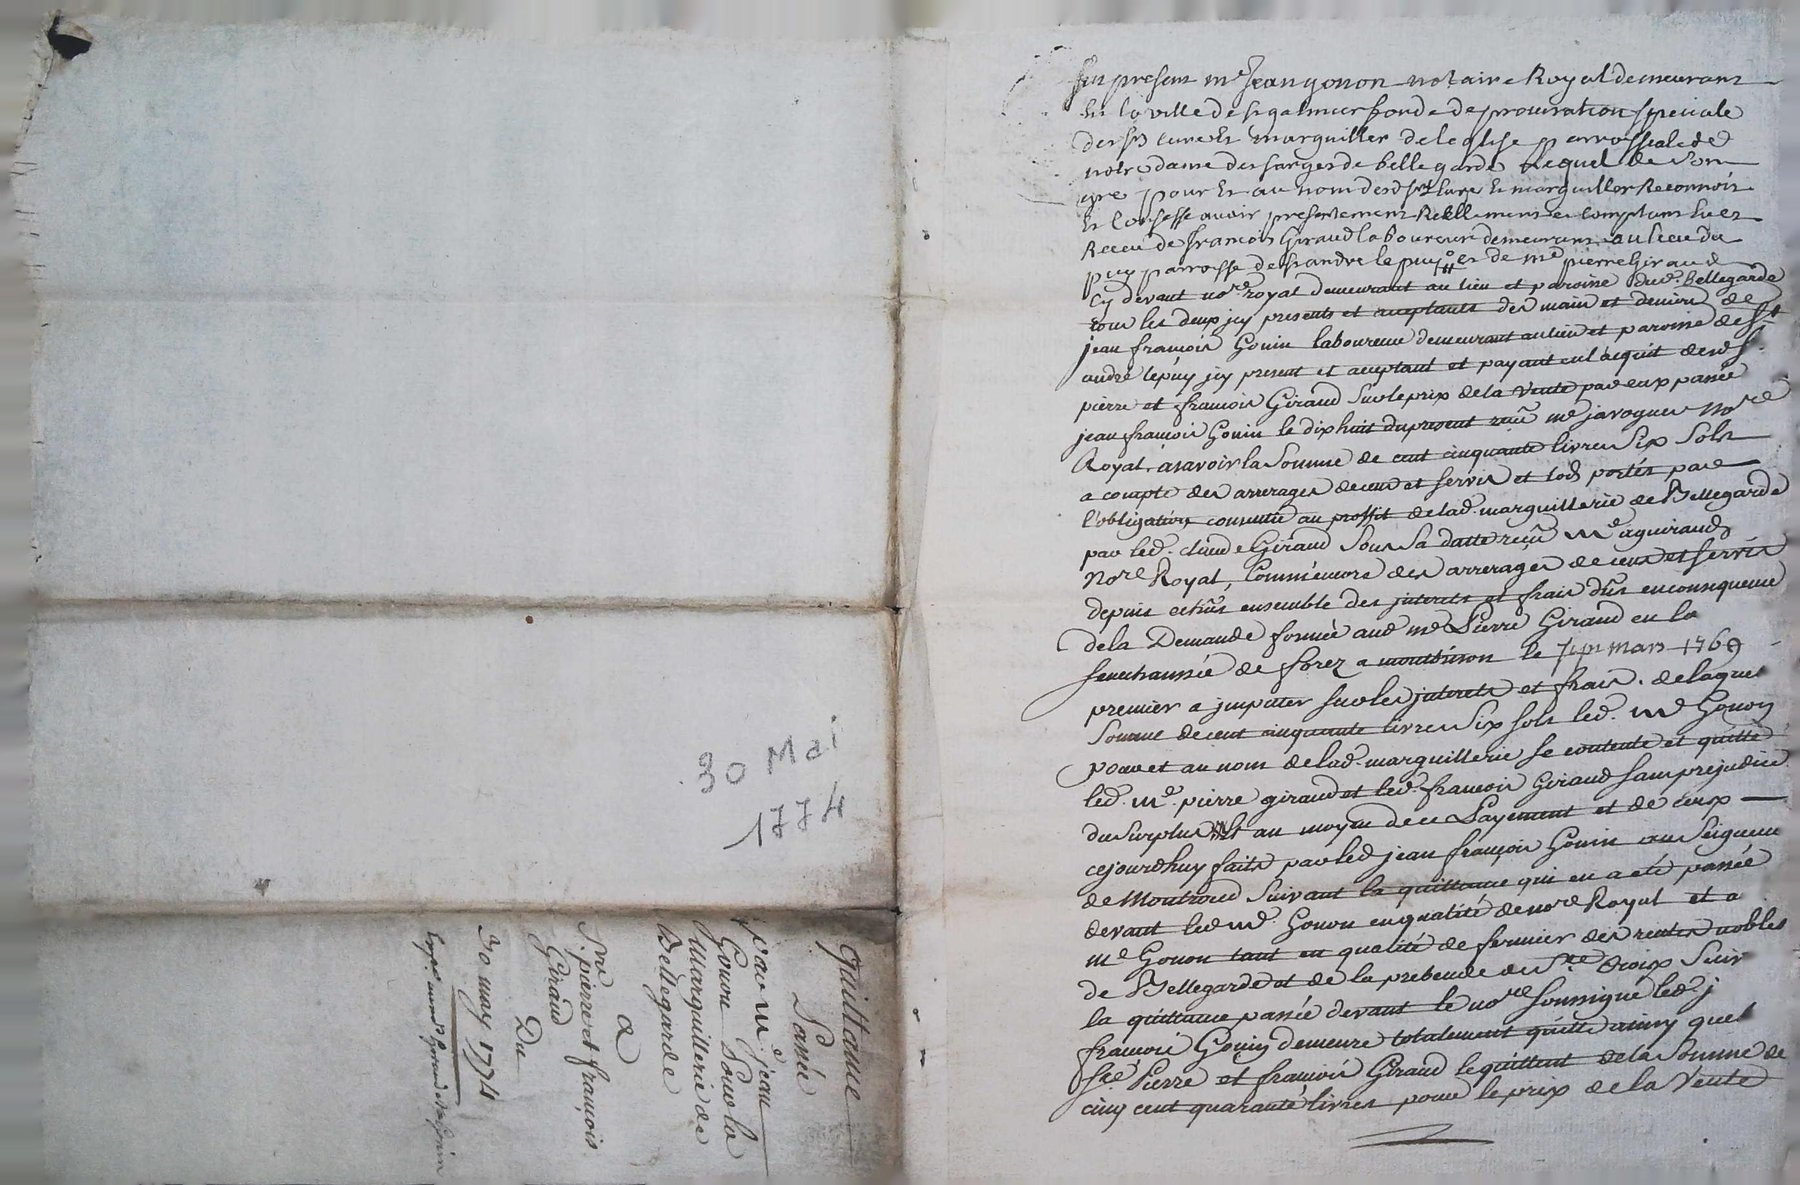 30 Mai
1774
Quittance
Passée
par me jean
Gonon Pour la
Marguillerie de
Bellegarde
a
Sre pierre et françois
Giraud
Du
30 may 1774
fut present me Jean gonon notaire Royal demeurant
En la ville de st galmier fondé de procuration specialle
des srs curé Et marguillier de leglise parroissialle de
notre dame des farges de bellegarde Lequel de son
gré pour Et au nom desd srs Curé Et marguillier Reconnoit
Et Confesse avoir presentement Reellement et comptant Eu et
Receu de francois Giraud laboureur demeurant au lieu du
puy parroisse de st andre le puy et de me pierre Giraud
Cy devant nore royal demeurant au lieu et paroisse dud. Bellegarde
tous les deux jcy presents et acceptants des main et deniers de
jean françois Gonin laboureur demeurant au lieu et paroisse de st
andré lepuy jcy present et acceptant et payant en l'acquit desd. s.
pierre et francois Giraud sur le prix de la Vente par eux passée
jean francois Gonin le dix huit du present reçu me javogues Nore
Royal, a savoir la Somme de cent cinquante livres Six Sols
a compte des arrerages de cens et servis et lods portés par
l'obligation consentie au proffit de lad. marguillerie de Bellegarde
par led. claude Giraud Sous Sa datte reçu Me aguiraud
Nore Royal, Comm'encore des arrerages de cens et servis
depuis echus ensemble des jnterets et frais dus en consequence
de la Demande formée aud me Pierre Giraud en la
senechaussée de forez a montbrison le 7 mars 1769
premier a jmputer sur les jnterets et frais. de laquel
Somme de cent cinquante livres Six sols led. Me Gonon
pour et au nom de lad. marguillerie se contente et quitte
led. Me. pierre giraud et led. francois Giraud sans prejudice
du surplus Et au moyen de ce Payement et de ceux
cejourd'huy faits par led jean françois Gonin au Seigneur
de Montrond Suivant la quittance qui en a été passée
devant led Me. Gonon en qualité de nore Royal et a
me Gonon tant en qualité de fermier des rentes nobles
de Bellegarde et de la prebende de Ste Croix Suiv
la quittance passée devant le nore soussigné led. j
francois Gonin demeure totalement quitte ainsy que
sre Pierre et francois Giraud le quittent de la Somme de
cinq cent quarante livres pour le prix de la Vente